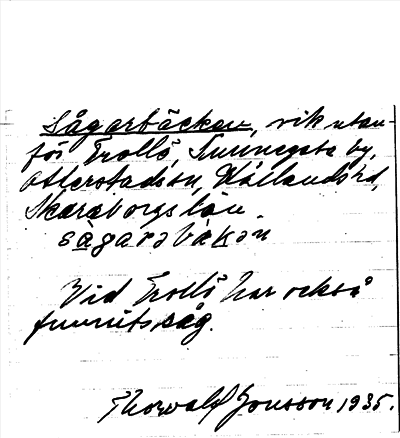 Sågarbäcken, vik utan-
för Trollö, Sunnersta by,
Otterstads sn, Kållands hd,
Skaraborgs län.
sågarabäkan
Vid Trollö har också
funnits såg.
Thorvald Jonsson 1935.